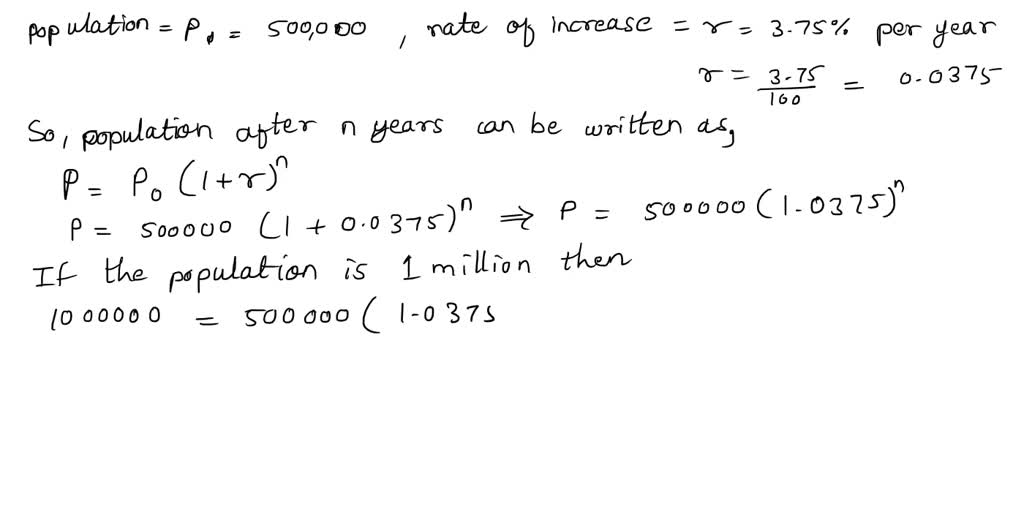 population = P₀ = 500,000 , rate of increase = r = 3.75% per year
r = 3.75/100 = 0.0375
So, population after n years can be written as,
P = P₀ (1+r)ⁿ
P = 500000 (1 + 0.0375)ⁿ ⇒ P = 500000 (1.0375)ⁿ
If the population is 1 million then
1000000 = 500000 ( 1.0375